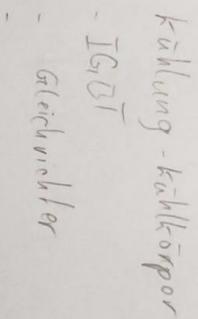 Kühlung - Kühlkörpor
- IGBT
- Gleichrichter
-